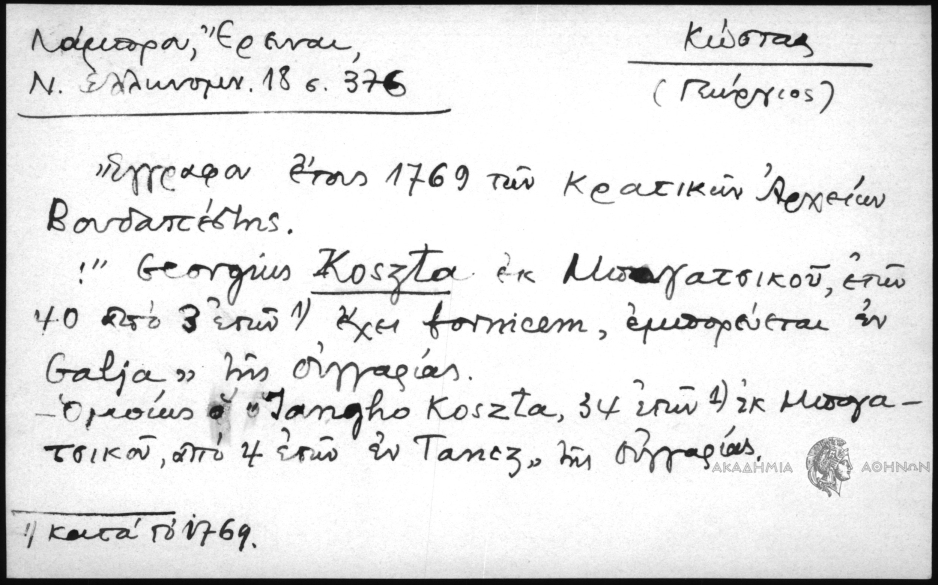 Λάμπρου, Ἔρευναι,
Ν. Ἑλληνομν. 18 σ. 376
Κώστας
(Γεώργιος)
Ἔγγραφον ἔτους 1769 τῶν Κρατικῶν Ἀρχείων
Βουδαπέστης.
!" Georgius Koszta ἐκ Μπογατσικοῦ, ἐτῶν
40 ἀπό 3 ἐτῶν 1) ἔχει fornicem, ἐμπορεύεται ἐν
Galja" τῆς Οὑγγαρίας.
- Ὁμοίως ὁ "Jangho Koszta, 34 ἐτῶν 1) ἐκ Μπογα-
τσικοῦ, ἀπό 4 ἐτῶν ἐν Tanez" τῆς Οὑγγαρίας.
ΑΚΑΔΗΜΙΑ ΑΘΗΝΩΝ
1) κατά τό 1769.